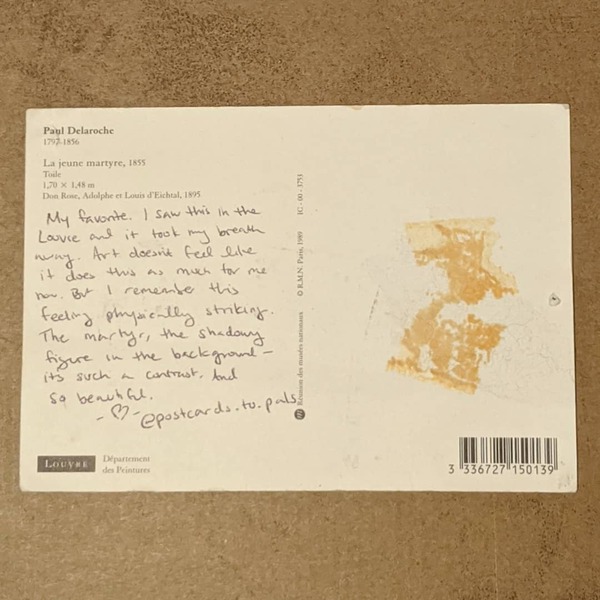 Paul Delaroche
1797-1856
La jeune martyre, 1855
Toile
1,70 × 1,48 m
Don Rose, Adolphe et Louis d'Eichtal, 1895
My favorite. I saw this in the
Louvre and it took my breath
away. Art doesn't feel like
it does this as much for me
now. But I remember this
feeling physically striking.
The martyr, the shadowy
figure in the background –
its such a contrast. And
so beautiful.
-♡- @postcards.to.pals
LOUVRE
Département
des Peintures
Réunion des musées nationaux © R.M.N. Paris, 1989 IC - 00 - 3751
3 336727 150139